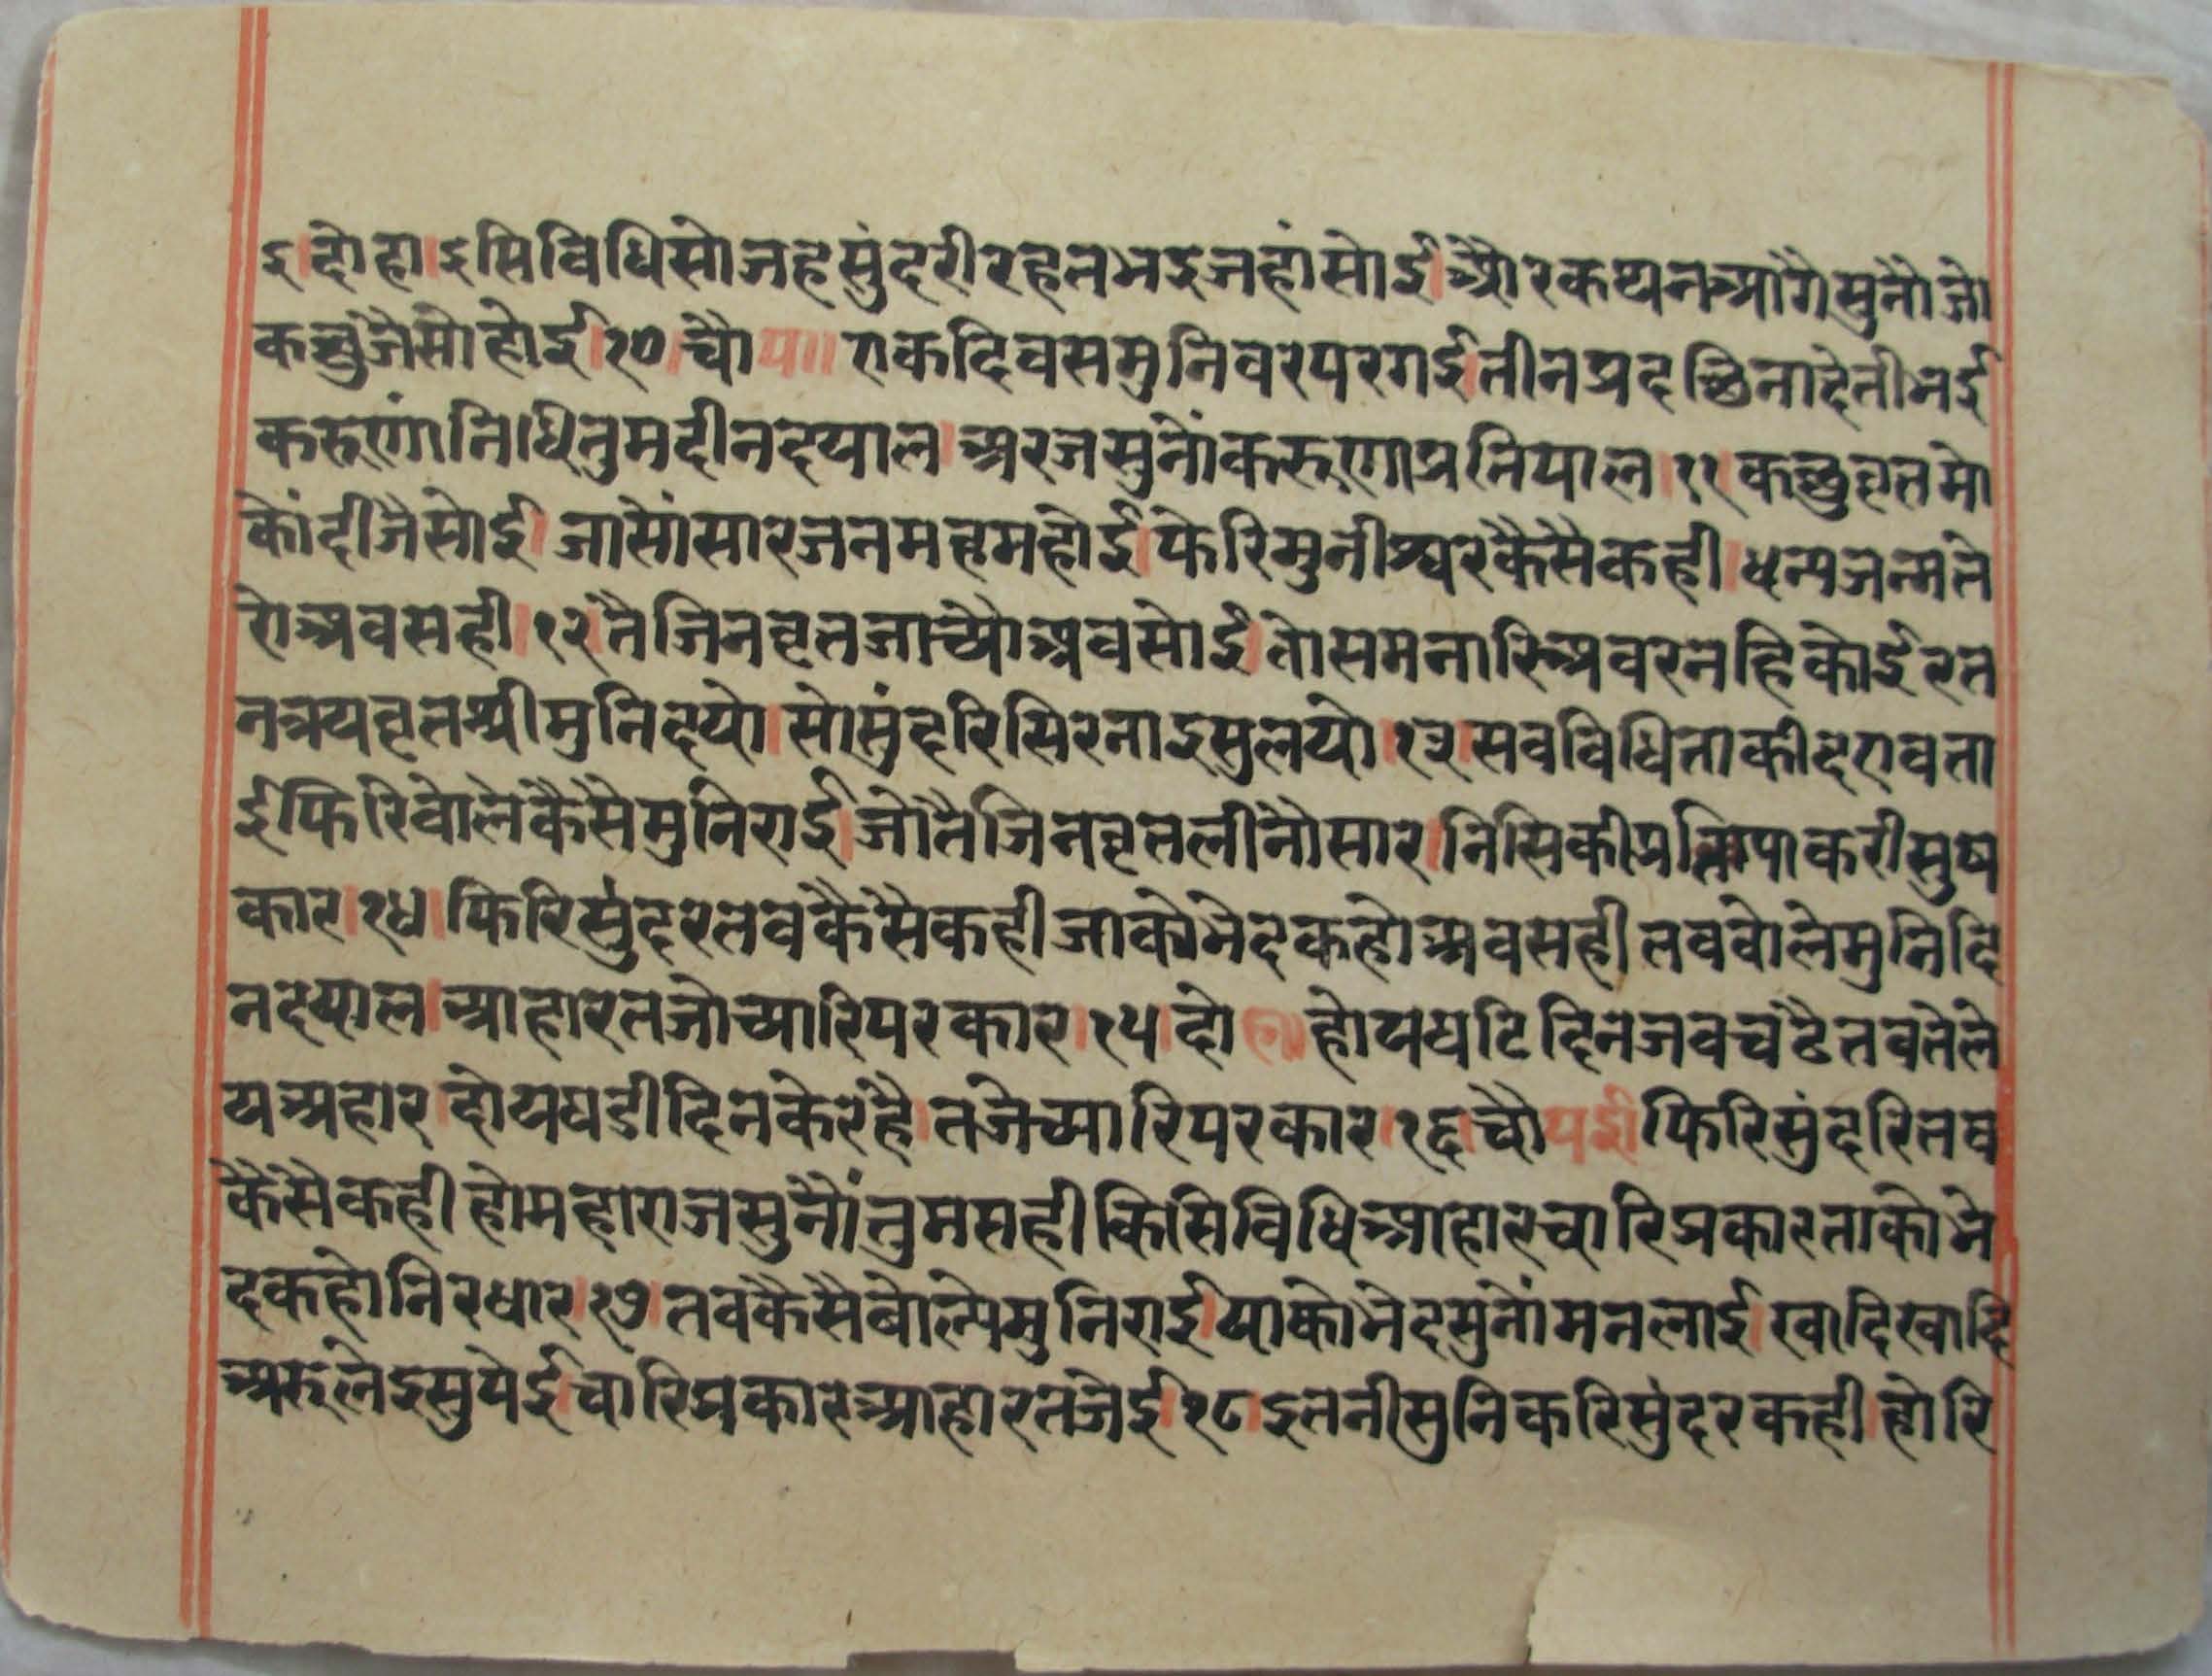 इ।दोहा।इसिविधिसोजहसुंदरीरहतभइजहांसोई।औरकथनआगैसुनौजो
कछुजैसोहोई।१०।चौप॥एकदिवसमुनिवरपरगई।तीनप्रदछिनादेतीभई
करुणांनिधितुमदीनदयाल।अरजसुनौंकरुणाप्रतिपाल।११।कछुव्रतमो
कोंदीजैसोई।जासोंसारजनमव्रमहोई।फेरिमुनीश्वरकैसैकही।धन्यजन्मते
रोअवसही।१२।तैजिनव्रतजाच्यौअवसोई।तोसमनारिअवरनहिकोईरत
नत्रयव्रतश्रीमुनिदयो।सोसुंदरिसिरनाइसुलयो।१३।सवविधिताकीदएवता
ईफिरिवोलेकैसैमुनिराई।जोतैजिनव्रतलीनौसार।निसिकीप्रतिपाकरीसुष
कार।१४।फिरिसुंदरतवकैसैकहीजाकोभेदकहोअवसहीतववोलेमुनिदि
नदयाल।आहारतजोच्यारिपरकार।१५।दोहा।होयघटिदिनजवचढैतवतेले
यअहार।दोयघडीदिनकेरहै।तजेच्यारिपरकार।१६।चौपई।फिरिसुंदरितव
कैसैकहीहोमहाराजसुनौंतुमसहीकिसिविधिआहारचारिप्रकारताकोभे
दकहोनिरधार।१७।तवकैसैबोल्येमुनिराई।याकोभेदसुनोंमनलाई।खादिखादि
अरुलेइसुपेई।चारिप्रकारआहारतजेई।१८।इतनीसुनिकरिसुंदरकही।होरि